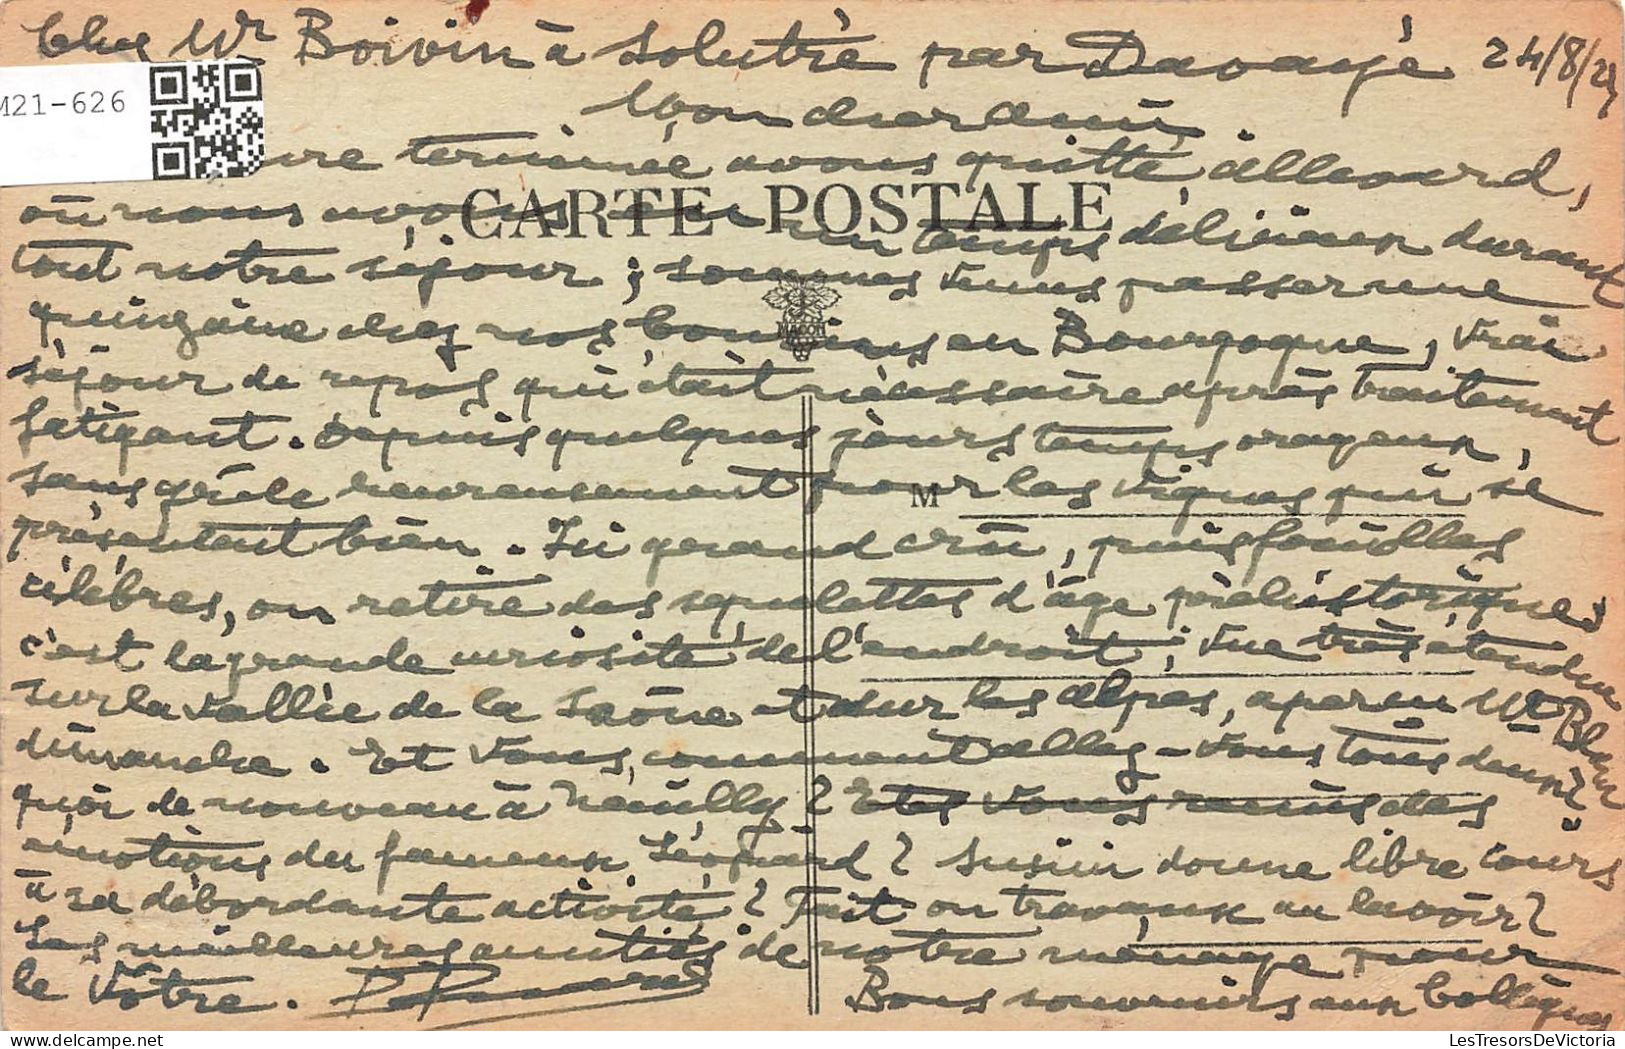 Chez Mr Boivin à Solutré par Davayé 24/8/27
M21-626
Mon cher ami
terminée avons quitté Allevard,
CARTE POSTALE
où nous avons eu un temps délicieux durant
tout notre séjour ; sommes venus passer une
quinzaine chez nos cousins en Bourgogne, vrai
MACON
séjour de repos qui était nécessaire après traitement
fatigant. Depuis quelques jours temps orageux,
sans grêle heureusement pour les vignes qui se
M
présentent bien. Ici grand crû, puis fouilles
célèbres, on retire des squelettes d'âge préhistorique,
c'est la grande curiosité de l'endroit ; vue très étendue
sur la vallée de la Saône et sur les Alpes, aperçu Mt Blanc
dimanche. Et vous, comment allez-vous tous deux ?
quoi de nouveau à Neuilly ? Etes vous remis des
émotions du fameux Léopard ? donne libre cours
à sa débordante activité ? Fait on travaux au lavoir ?
Les meilleures amitiés de notre ménage pour
le vôtre.
Bons souvenirs aux Collègues
LesTresorsDeVictoria